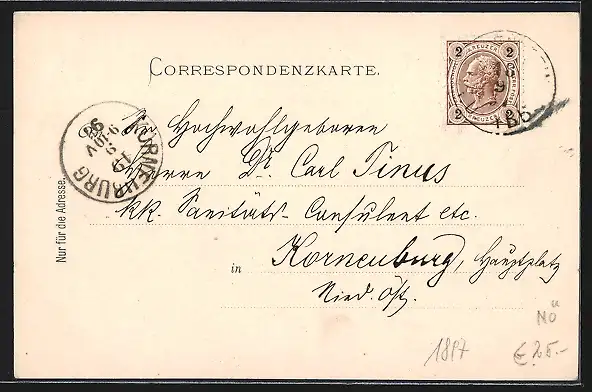 CORRESPONDENZKARTE.
2 KREUZER 2
2 KREUZER 2
Sr. Hochwohlgeboren
Herrn Dr. Carl Tinus
kk. Sanitäts-Consulent etc.
in Korneuburg, Hauptplatz
Nied. Öst.
Nur für die Adresse.
KORNEUBURG
NÖ
1897
€ 25.-